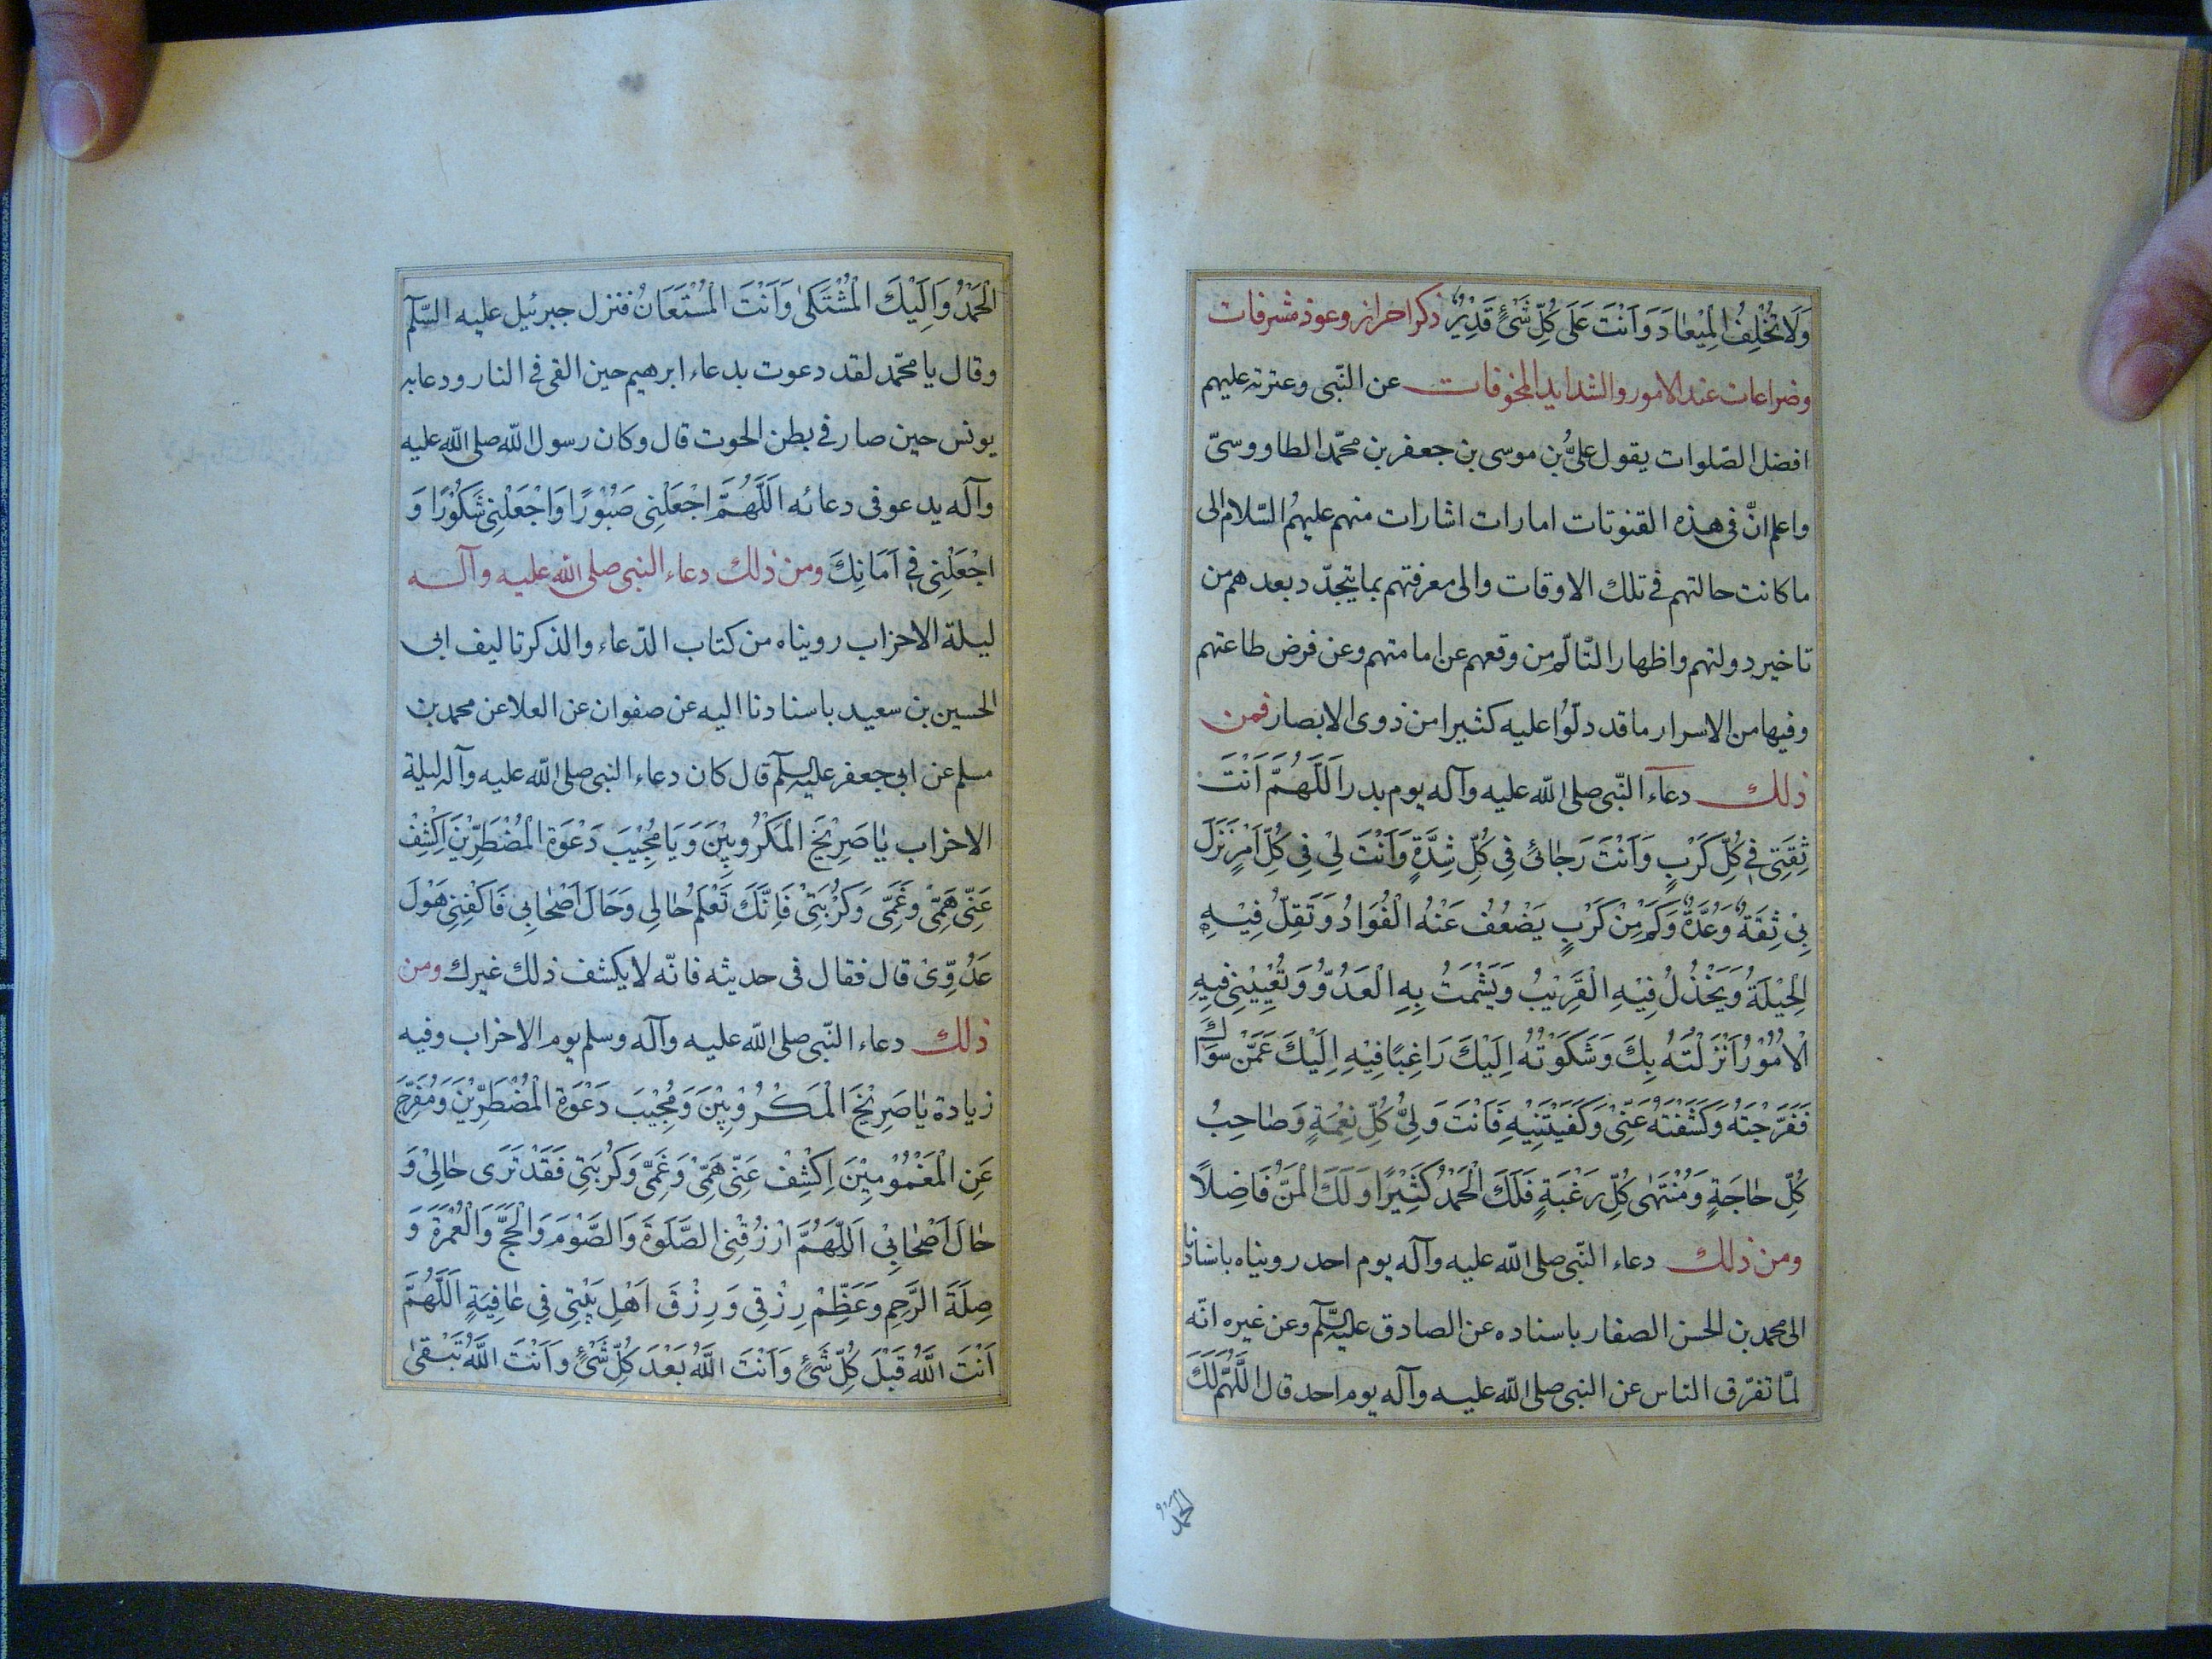 وَلَا تُخْلِفُ الْمِيْعَادَ وَاَنْتَ عَلَى كُلِّ شَيْءٍ قَدِيْرٌ ذكر احراز وعوذ مشرفات
وضراعات عند الامور والشدايد المخوفات عن النّبى وعترته عليهم
افضل الصّلوات يقول علىُّ بن موسى بن جعفر بن محمّد الطاووسىّ
واعلم انّ فى هذه القنوتات امارات اشارات منهم عليهمُ السّلام الى
ما كانت حالتهم فى تلك الاوقات والى معرفتهم بما يتجدّد بعدهم من
تاخير دولتهم واظهار التّالّم من وقعهم عن امامتهم وعن فرض طاعتهم
وفيها من الاسرار ما قد دلّوُا عليه كثيرا من ذوى الابصار فمن
ذلك دعآء النّبى صلى الله عليه وآله يوم بدر اَللّٰهُمَّ اَنْتَ
ثِقَتِى فِى كُلِّ كَرْبٍ وَاَنْتَ رَجَائِى فِى كُلِّ شِدَّةٍ وَاَنْتَ لِىْ فِى كُلِّ اَمْرٍ نَزَلَ
بِىْ ثِقَةٌ وَعُدَّةٌ وَكَمْ مِنْ كَرْبٍ يَضْعُفُ عَنْهُ الْفُوَادُ وَتَقِلُّ فِيْهِ
الْحِيْلَةُ وَيَخْذُلُ فِيْهِ الْقَرِيْبُ وَيَشْمَتُ بِهِ الْعَدُوُّ وَتُعْيِيْنِى فِيهِ
الْاُمُوْرُ اَنْزَلْتُهُ بِكَ وَشَكَوْتُهُ اِلَيْكَ رَاغِبًا فِيْهِ اِلَيْكَ عَمَّنْ سِوَاكَ
فَفَرَّجْتَهُ وَكَشَفْتَهُ عَنِّىْ وَكَفَيْتَنِيْهِ فَاَنْتَ وَلِىُّ كُلِّ نِعْمَةٍ وَصَاحِبُ
كُلِّ حَاجَةٍ وَمُنْتَهٰى كُلِّ رَغْبَةٍ فَلَكَ الْحَمْدُ كَثِيْرًا وَلَكَ الْمَنُّ فَاضِلاً
ومن ذلك دعاء النّبى صلى الله عليه وآله يوم احد رويناه باسنادنا
الى محمد بن الحسن الصفار باسناده عن الصادق عليه السّلم وعن غيره انّه
لمّا تفرّق الناس عن النبى صلى الله عليه وآله يوم احد قال اَللّٰهُمَّ لَكَ
الحمدُ
الْحَمْدُ وَاِلَيْكَ الْمُشْتَكىٰ وَاَنْتَ الْمُسْتَعَانُ فنزل جبرئيل عليه السّلم
وقال يا محمّد لقد دعوت بدعاء ابرهيم حين القى فى النار ودعا به
يونس حين صار فى بطن الحوت قال وكان رسول الله صلى الله عليه
وآله يدعو فى دعائه اَللّٰهُمَّ اجْعَلْنِى صَبُوْرًا وَاجْعَلْنِى شَكُوْرًا وَ
اجْعَلْنِى فِى اَمَانِكَ ومن ذلك دعاء النبى صلى الله عليه وآله
ليلة الاحزاب رويناه من كتاب الدّعاء والذكر تاليف ابى
الحسين بن سعيد باسنادنا اليه عن صفوان عن العلا عن محمد بن
مسلم عن ابى جعفر عليه السلم قال كان دعاء النبى صلى الله عليه وآله ليلة
الاحزاب يَا صَرِيْخَ الْمَكْرُوبِيْنَ وَيَا مُجِيْبَ دَعْوَةِ الْمُضْطَرِّيْنَ اِكْشِفْ
عَنِّى هَمِّىْ وَغَمِّى وَكَرْبَتِىْ فَاِنَّكَ تَعْلَمُ حَالِى وَحَالَ اَصْحَابِى فَاكْفِنِى هَوْلَ
عَدُوِّىْ قال فقال فى حديثه فانّه لا يكشف ذلك غيرك ومن
ذلك دعاء النّبى صلى الله عليه وآله وسلم يوم الاحزاب وفيه
زيادة يَا صَرِيْخَ الْمَكْرُوْبِيْنَ وَمُجِيْبَ دَعْوَةِ الْمُضْطَرِّيْنَ وَمُفَرِّجَ
عَنِ الْمَغْمُوْمِيْنَ اِكْشِفْ عَنِّى هَمِّىْ وَغَمِّى وَكَرْبَتِى فَقَدْ تَرَى حَالِىْ وَ
حَالَ اَصْحَابِىْ اَللّٰهُمَّ ارْزُقْنِى الصَّلَوةَ وَالصَّوْمَ وَالْحَجَّ وَالْعُمْرَةَ وَ
صِلَةَ الرَّحِمِ وَعَظِّمْ رِزْقِى وَرِزْقَ اَهْلِ بَيْتِى فِى عَافِيَةٍ اَللّٰهُمَّ
اَنْتَ اللهُ قَبْلَ كُلِّ شَىْءٍ وَاَنْتَ اللهُ بَعْدَ كُلِّ شَىْءٍ وَاَنْتَ اللهُ تَبْقىٰ